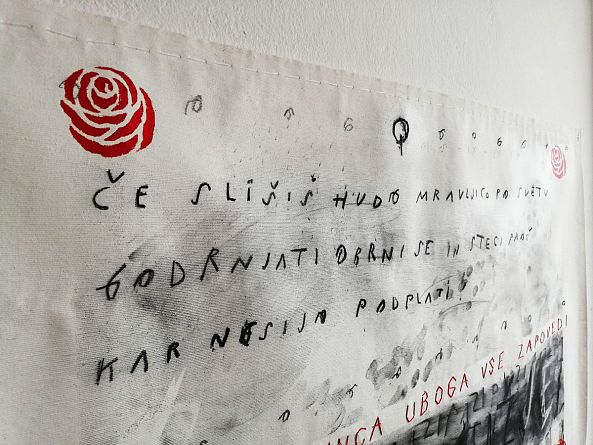 ČE SLIŠIŠ HUDO MRAVLJICO PO SVETU
GODRNJATI OBRNI SE IN STECI PROČ
KAR NESIJO PODPLATI!
UBOGA VSE ZAPOVEDI